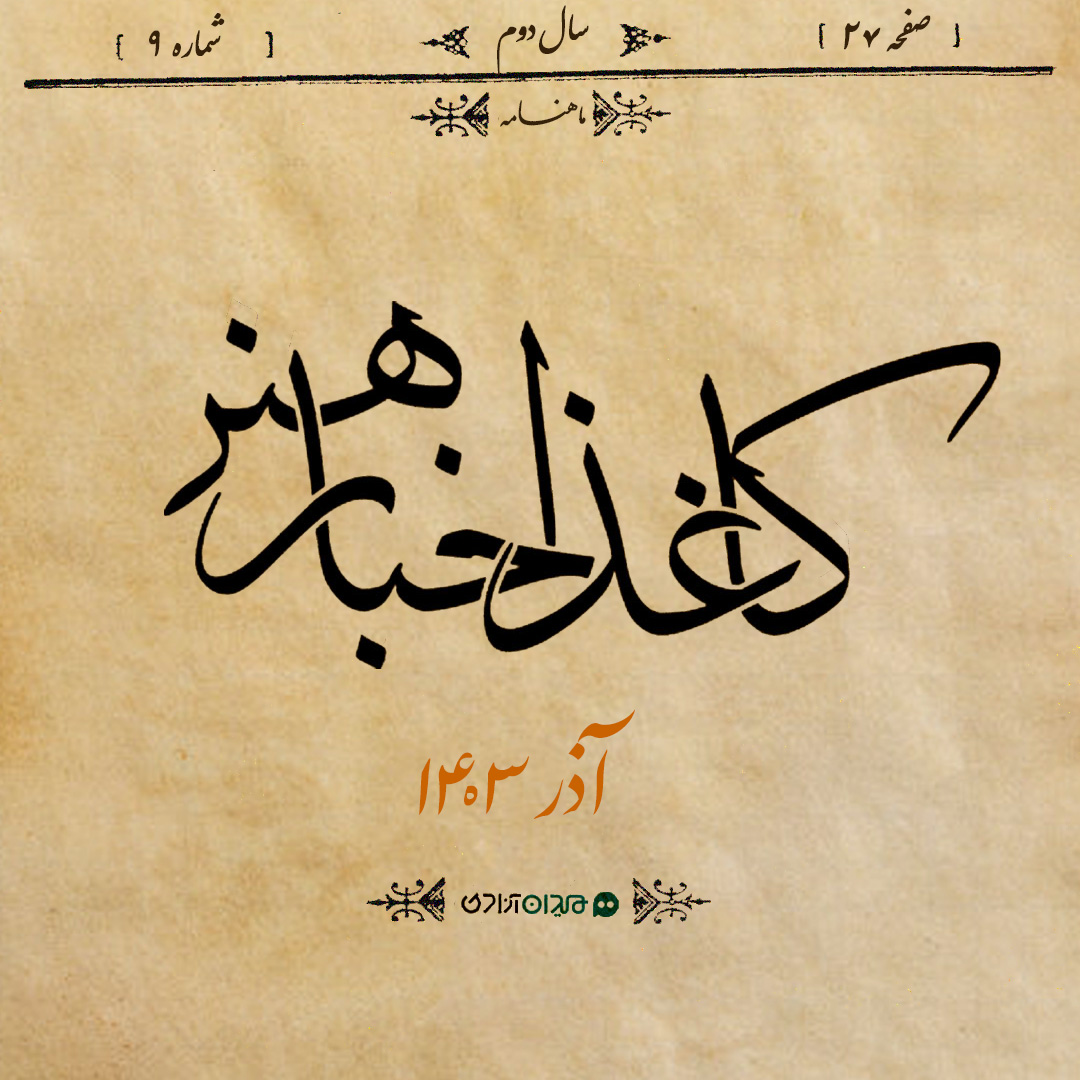 [ صفحه ۲۷ ] سال دوم [ شماره ۹ ]
ماهنامه
کاغذ اخبار هنر
آذر ۱۴۰۳
میدان آزادی